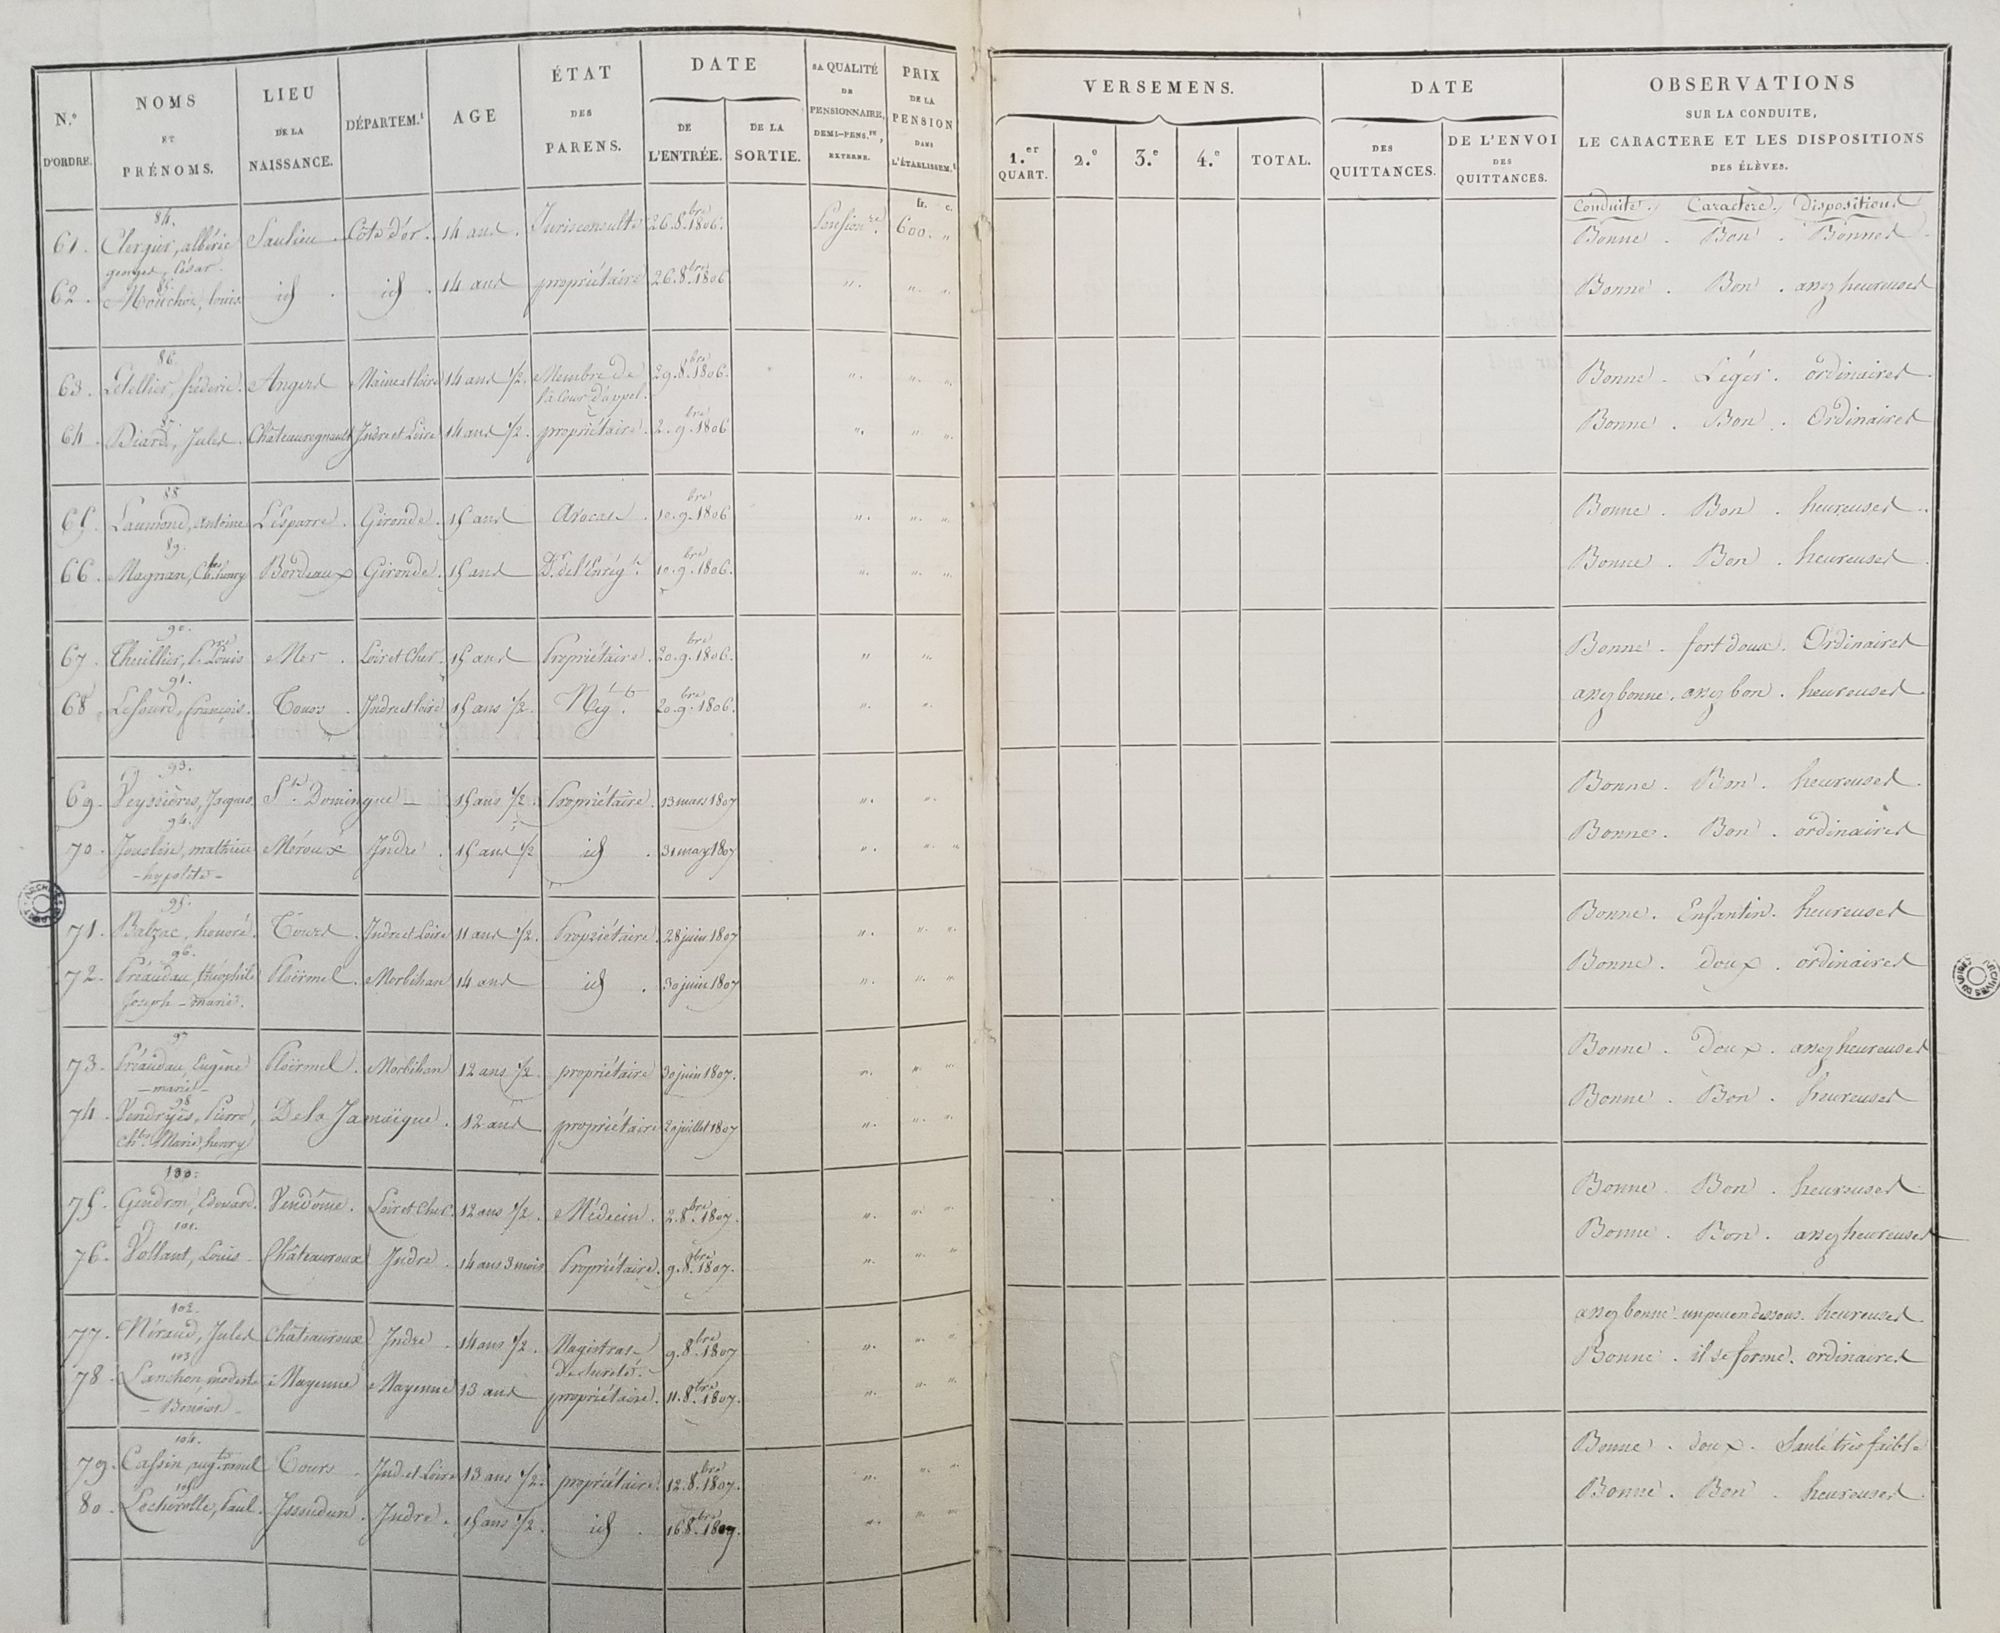 N.º D'ORDRE.
NOMS ET PRÉNOMS.
LIEU DE LA NAISSANCE.
DÉPARTEM.t
AGE
ÉTAT DES PARENS.
DATE
DE L'ENTRÉE.
DE LA SORTIE.
SA QUALITÉ DE PENSIONNAIRE, DEMI-PENS.re, EXTERNE.
PRIX DE LA PENSION DANS L'ÉTABLISSEM.t
VERSEMENS.
1.er QUART.
2.e
3.e
4.e
TOTAL.
DATE
DES QUITTANCES.
DE L'ENVOI DES QUITTANCES.
OBSERVATIONS
SUR LA CONDUITE,
LE CARACTERE ET LES DISPOSITIONS
DES ÉLÈVES.
fr. c.
Conduite. Caractère. Dispositions
84.
61. Clerget, albéric Saulieu. Côte d'or. 14 ans. Jurisconsulte 26. 8.bre 1806. Pension.re 600. " Bonne. Bon. Bonnes.
georges, César.
85.
62. Mouchot, louis id. id. 14 ans propriétaire 26. 8.bre 1806 ". ". ". Bonne. Bon. assez heureuses
86.
63. Letellier, fréderic. Angers Maine et loire 14 ans 1/2. Membre de 29. 8.bre 1806. ". ". ". Bonne. Léger. ordinaires.
la Cour d'appel.
87.
64. Biard, Jules. Châteauregnault Indre et Loire 14 ans 1/2. propriétaire. 2. 9.bre 1806 ". ". ". Bonne. Bon. Ordinaires
88
65. Laumond, antoine Lesparre. Gironde. 15 ans Avocat. 10. 9.bre 1806 ". ". " Bonne. Bon. heureuses.
89.
66. Magnan, Ch.les henry Bordeaux Gironde. 15 ans D.r de l'Enreg.t. 10. 9.bre 1806. ". ". ". Bonne. Bon. heureuses.
90.
67. Thuillier, P.re Louis Mer. Loir et Cher. 15 ans Propriétaire. 20. 9.bre 1806. " ". Bonne. fort doux. Ordinaires
91.
68. Lesourd, françois. Tours. Indre et loire 15 ans 1/2. Nég.t. 20. 9.bre 1806. ". ". assez bonne. assez bon. heureuses
93.
69. Veyssières, Jacques, S.t Domingue 15 ans 1/2. Propriétaire. 13 mars 1807 ". ". " Bonne. Bon. heureuses.
94.
70. Jouslin, mathieu Méroux Indre. 15 ans 1/2 id. 31 may 1807 ". ". " Bonne. Bon. ordinaires
- hypolite -
95.
71. Balzac, honoré. Tours. Indre et Loire 11 ans 1/2. Propriétaire. 28 juin 1807 ". ". ". Bonne. Enfantin. heureuses
96.
72. Préaudau, théophile Ploërmel. Morbihan 14 ans id. 30 juin 1807 ". ". " Bonne. doux. ordinaires
Joseph - marie.
97
73. Préaudau, Eugène Ploërmel. Morbihan 12 ans 1/2. propriétaire 30 juin 1807. ". ". " Bonne. doux. assez heureuses
- marie -
98
74. Vendryès, Pierre, De la Jamaïque. 12 ans. propriétaire 20 juillet 1807 ". ". " Bonne. Bon. heureuses
Ch.les Marie, henry
100.
75. Gendron, Edouard. Vendôme. Loir et Cher. 12 ans 1/2. Médecin. 2. 8.bre 1807. ". ". " Bonne. Bon. heureuses
101.
76. Vollant, Louis Châteauroux Indre. 14 ans 3 mois Propriétaire. 9. 8.bre 1807. ". ". " Bonne. Bon. assez heureuses
102.
77. Néraud, Jules Châteauroux Indre. 14 ans 1/2. Magistrat 9. 8.bre 1807 ". ". " assez bonne. un peu en dessous. heureuses
de sureté.
103.
78. modeste Mayenne Mayenne 13 ans propriétaire. 11. 8.bre 1807. ". ". " Bonne. il se forme. ordinaires
104.
79. Cassin, aug.te raoul Tours. Ind. et Loire 13 ans 1/2. propriétaire. 12. 8.bre 1807. ". ". " Bonne. doux. Santé très faible
105
80. Lecherolle, Paul. Issoudun. Indre. 15 ans 1/2. id. 16 8.bre 1807. ". ". " Bonne. Bon. heureuses.